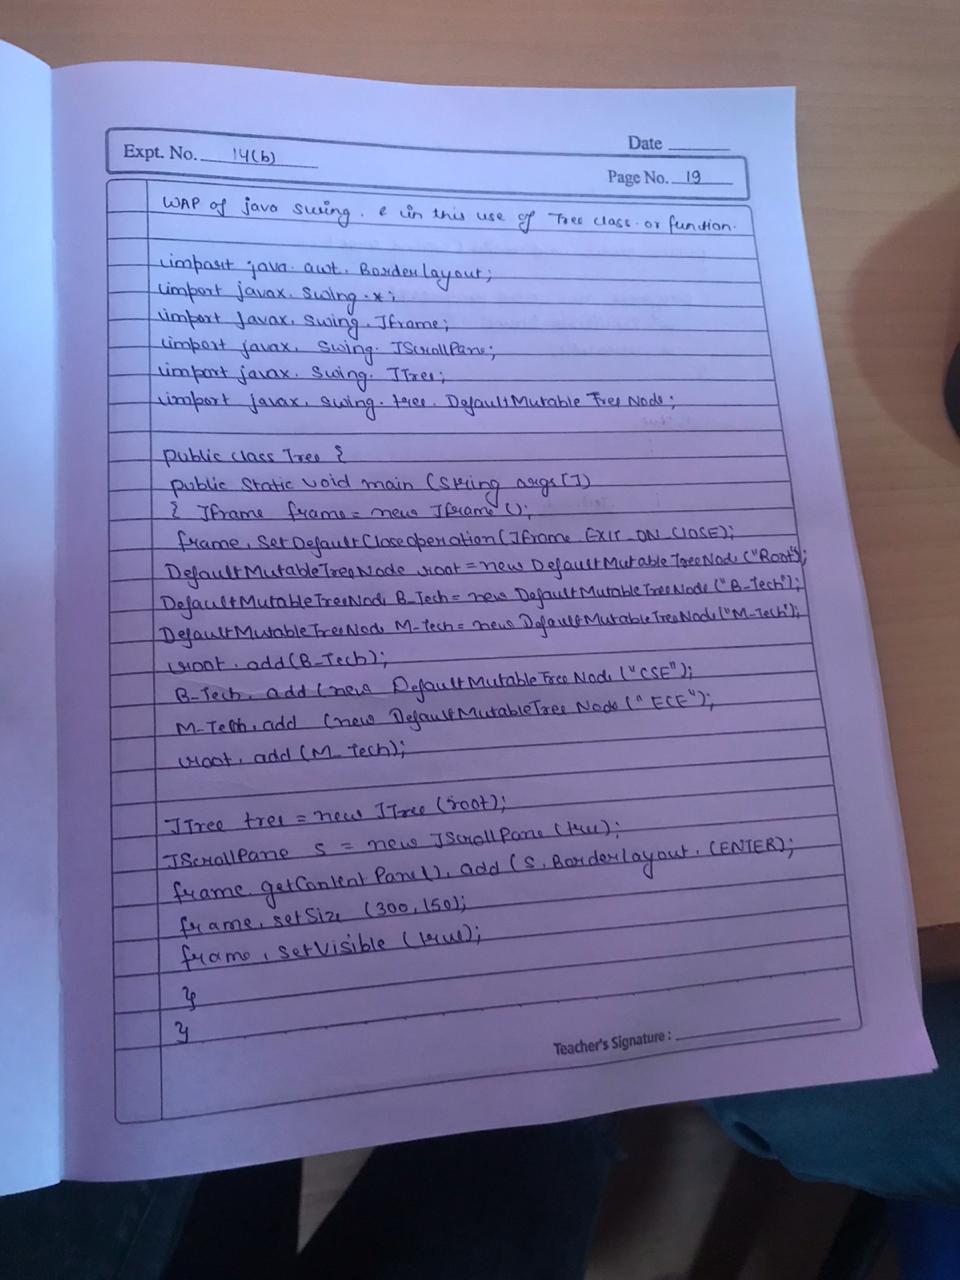 Date
Expt. No. 14(b)
Page No. 19
WAP of java swing. & in this use of Tree class. or function.
import java. awt. BorderLayout;
import javax. swing.*;
import javax. swing. Jframe;
import javax. swing. JScrollPane;
import javax. swing. JTree;
import javax. swing. tree. DefaultMutable Tree Node;
public class Tree {
public static void main (String args[])
{ Jframe frame = new Jframe ();
frame. SetDefaultCloseoperation(JFrame. EXIT_ON_CLOSE);
DefaultMutableTreeNode root = new DefaultMutable TreeNode ("Root");
DefaultMutableTreeNode B_Tech = new DefaultMutableTreeNode ("B-Tech");
DefaultMutableTreeNode M-tech = new DefaultMutableTreeNode ("M-Tech");
root. add(B-Tech);
B-Tech. add (new DefaultMutable Tree Node ("CSE");
M-Tech. add (new DefaultMutableTree Node ("ECE");
root. add (M_tech);
JTree tree = new JTree (root);
JScrollPane s = new JScrollPane (tree);
frame. getContent Pane(). add (s. BorderLayout. CENTER);
frame. setSize (300,150);
frame. setVisible (true);
}
}
Teacher's Signature :